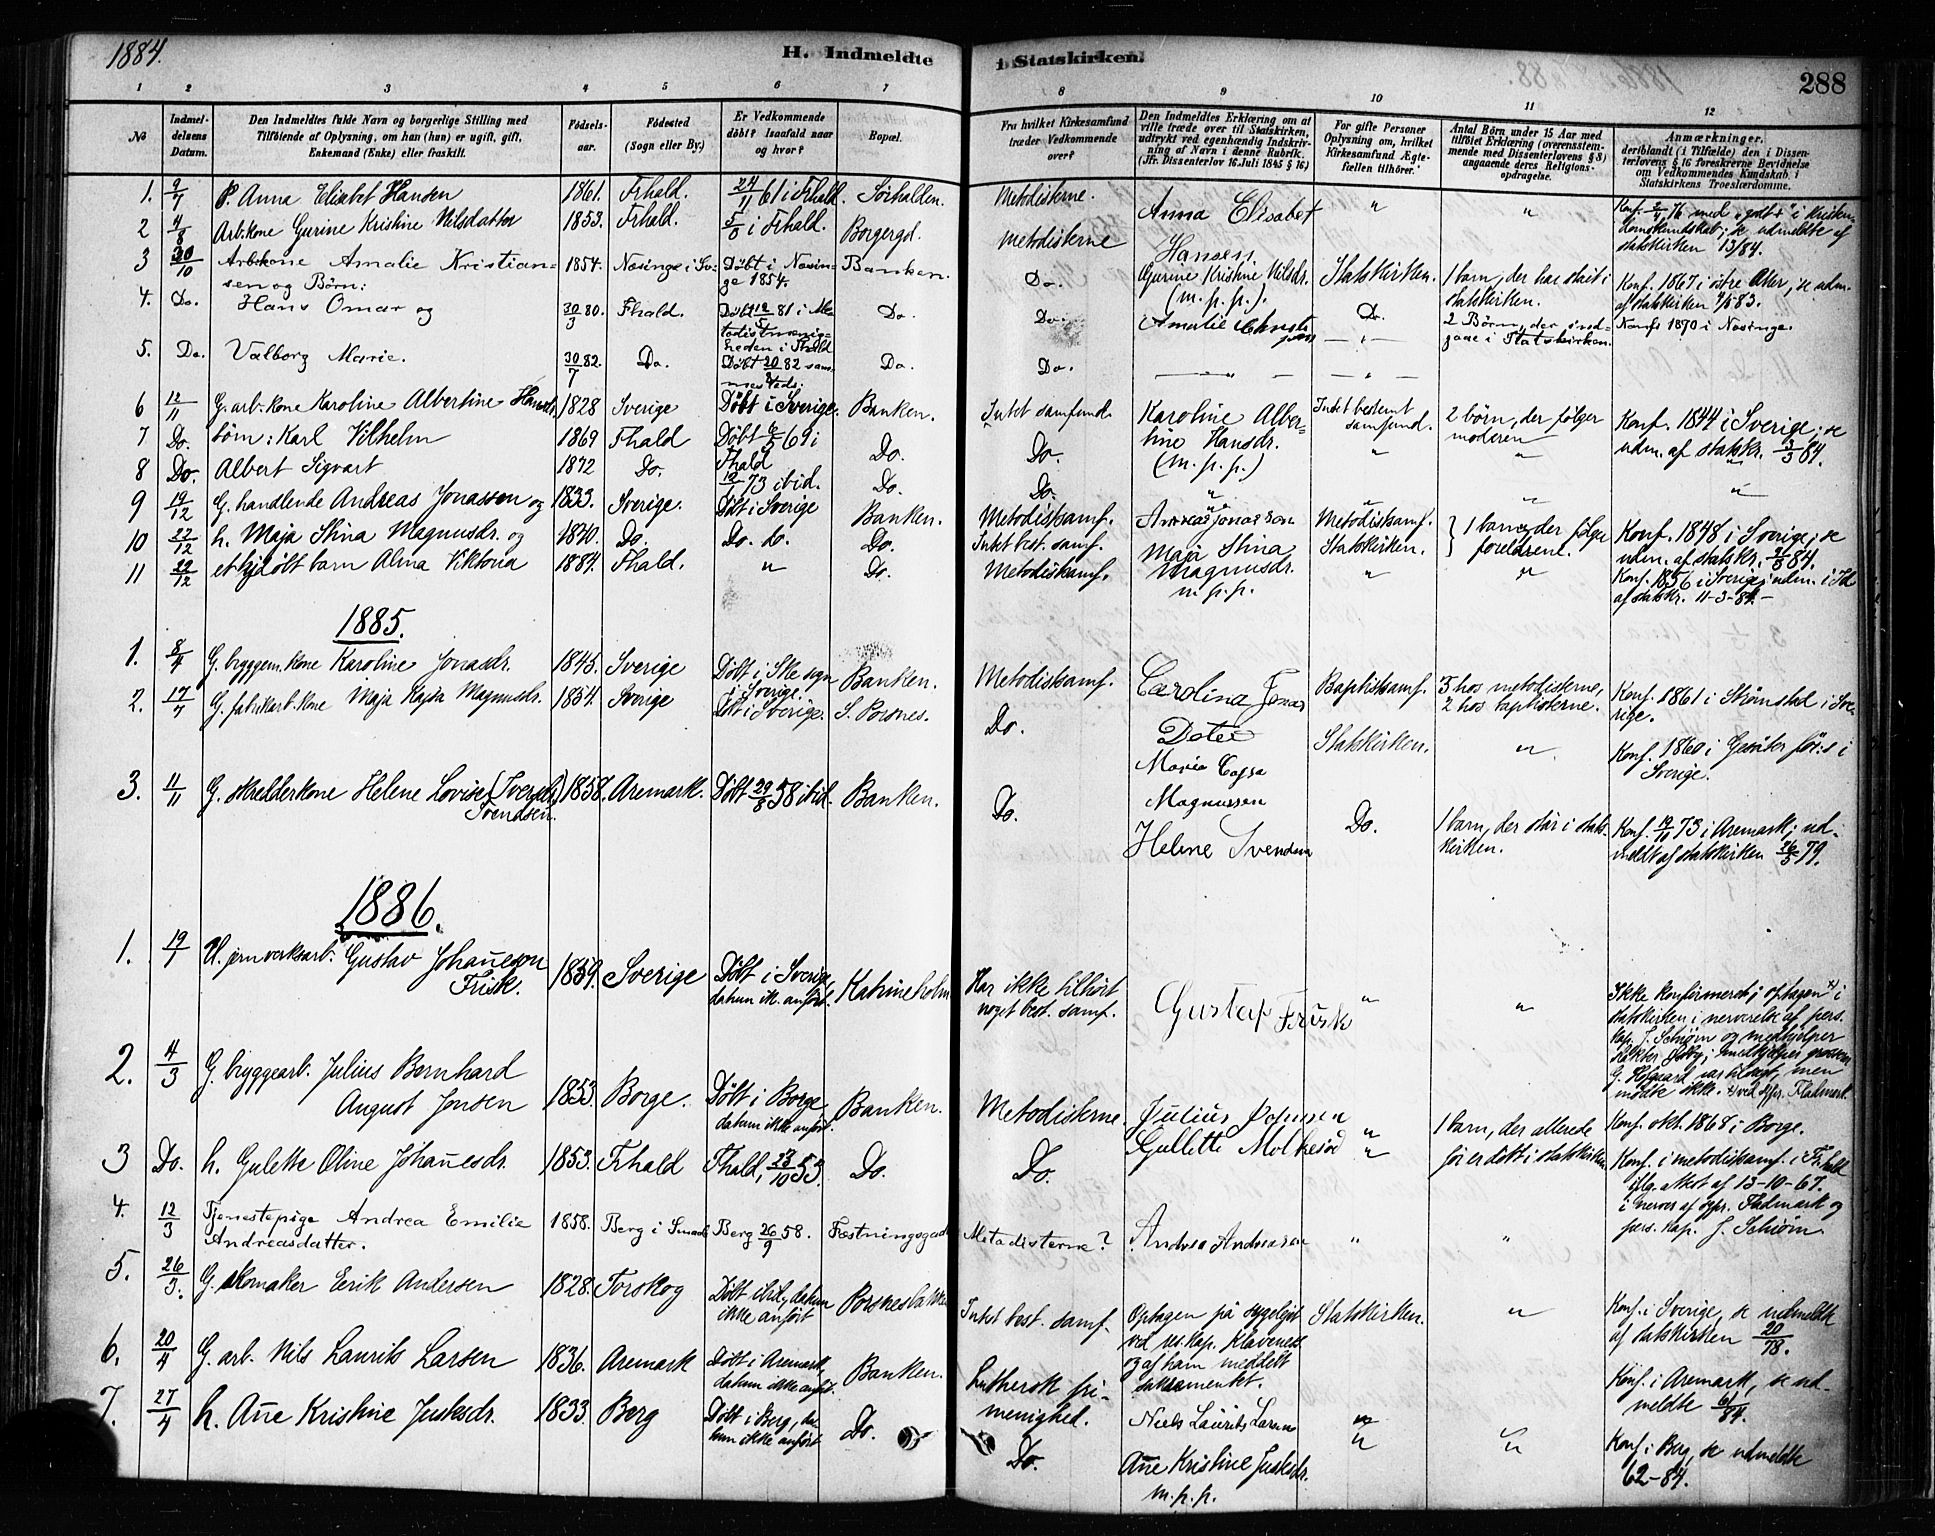 1884.
H. Indmeldte
i Statskirken.
288
1 2 3 4 5 6 7 8 9 10 11 12
No
Indmel-
delsens
Datum.
Den Indmeldtes fulde Navn og borgerlige Stilling med
Tilföiende af Oplysning, om han (hun) er ugift, gift,
Enkemand (Enke) eller fraskilt.
Födsels-
aar.
Födested
(Sogn eller By.)
Er Vedkommende
döbt? Isaafald naar
og hvor?
Bopæl.
Fra hvilket Kirkesamfund
træder Vedkommende
over?
Den Indmeldtes Erklæring om at
ville træde over til Statskirken,
udtrykt ved egenhændig Indskriv-
ning af Navn i denne Rubrik.
(Jfr. Dissenterlov 16 Juli 1845 § 16)
For gifte Personer
Oplysning om, hvilket
Kirkesamfund Ægte-
fællen tilhörer.
Antal Börn under 15 Aar med
tilföiet Erklæring (overensstem-
mende med Dissenterlovens § 8)
angaaende deres Religions-
opdragelse.
Anmærkninger,
deriblandt (i Tilfælde) den i Dissen-
terlovens § 16 foreskrevne Bevidnelse
om Vedkommendes Kundskab i
Statskirkens Troeslærdomme.
1. 9/7 P. Anna Elisabet Hansen 1861. Frhald. 24/11 61 i Frhald. Sörhalden. Metodisterne. Anna Elisabet Hansen. " " Konf. 2/4 76 med "godt+" i kristen-
domskundskab; se udmeldte af
statskirken 13/84.
2 4/8 Arb.kone Gurine Kristine Nilsdatter 1853. Frhald. i Frhald. Borgergd. Metodisterne Gurine Kristine Nilsdr. (m. p. p.). Statskirken. 1 barn, der har stået i
statskirken. Konf. 1867 i östre Aker, se udm.
af statskirken 83.
3 30/10 Arb.kone Amalie Kristian-
sen og Börn: 1854. Næsinge i Sv. Döbt i Næsin-
ge 1854. Banken. Do. Amalie Do. 2 Börn, der ind-
gaae i Statskirken. Konf. 1870 i Næsinge.
4. Do. Hans Omar og 30/3 80. Fhald. Döbt 81 i Me-
todistmenig-
heden i Fhald Do. Do.
5. Do. Valborg Marie. 30/7 82. Do. Döbt 82 sam-
mesteds. Do. Do.
6 12/11 G. arb.kone Karoline Albertine Hansdr. 1828 Sverige Döbt i Sverige. Banken. Intet samfund. Karoline Alber-
tine Hansdr.
(m. p. p.) Intet bestemt
samfund. 2 börn, der følger
moderen Konf. 1844 i Sverige; se
udm. af statskr. 3/3 84.
7 Do. börn: Karl Vilhelm 1869 Fhald Döbt 69 i
Fhald Do. Do. " "
8 Do. Albert Sigvart 1872 Do. 73 ibid. Do. Do. " " "
9 19/12 G. handlende Andreas Jonassen og 1833. Sverige. Döbt i Sverige Banken. Metodistsamf. Andreas Jonasson Metodistsamf. 1 barn, der følger
foreldrene. Konf. 1848 i Sverige; se
udm. af statskr. 84.
10 22/12 h. Maja Stina Magnusdr. og 1840. Do. Do. do. Do. Intet best. samf. Maja Stina
Magnusdr.
m. p. p. Statskirken. Konf. 1856 i Sverige; udm. i Id
af statskr. 11-3-84.
11 22/12 et hjdöbt barn Alma Viktoria 1884. Fhald. " Do. Metodistsamf. " "
1885.
1. 8/4 G. bryggem. kone Karoline Jonasdr. 1845. Sverige Döbt i Ske sogn
i Sverige. Banken. Metodistsamf. Carolina Jonas
Doter Baptistsamf. 3 hos metodisterne,
2 hos baptisterne. Konf. 1861 i Strömstad i Sve-
rige.
2. 17/7 G. fabrikarb.kone Maja Kajsa Magnusdr. 1854. Sverige Döbt i Sverige. S. Posnes. Do. Maria Cajsa
Magnussen Statskirken. " Konf. 1860 i
Sverige.
3. 11/11 G. skredderkone Helene Lovise (Svendsdr.)
Svendsen. 1858. Aremark. Döbt 58 ibid. Banken. Do. Helene Svendsen Do. 1 barn, der står i stats-
kirken. Konf. 19/10 73 i Aremark; ud-
meldt af statskirken 26/5 79.
1886.
1. 19/1 U. jernverksarb. Gustav Johaneson
Frisk. 1859. Sverige Döbt i Sverige,
datum ik. anført. Katrineholm Har ikke tilhört
noget best. samf. Gustaf Frisk " " Ikke konfirmeret; optagen i
statskirken i nerverelse af pers.
kap. J. Schiøin og medhjelper
G. Hofgaard var tilsagt, men
mødte ikke. ved sgpr. Fladmark.
2. 4/3 G. bryggearb. Julius Bernhard
August Jensen 1853. Borge. Döbt i Borge,
datum ikke anført. Banken. Metodisterne. Julius Johnsen " 1 barn, der allerede
för er döbt i statskirken Konf. okt. 1868 i Borge.
3 Do. h. Gulette Oline Johanesdr. 1853. Frhald Fhald, 23/10 53. Do. Do. Gullette " Konf. i metodistsamf. i Frhald
iflg. attest af 13-10-67.
i nerver. af sgpr. Fladmark og
pers. kap. J. Schiøin.
4. 12/3 Tjenestepige Andrea Emilie
Andreasdatter. 1858. Berg i Smaal. Berg 26/9 58. Fæstningsgad. Metodisterne? Andrea Andreasen " "
5. 26/3. G. skomaker Eerik Andersen 1828. Torskog Döbt ibid., datum
ikke anført Posnesbakken Intet best. samf. Optagen på sygelejet
ved res. kap. Klaveness
og af ham meddelt
sakramentet. Statskirken. " Konf. i Sverige, se udmeldte
af statskirken 20/78.
6. 20/4 G. arb. Nils Laurits Larsen 1836. Aremark Döbt i Aremark,
datum ikke anført. Banken. Luthersk fri-
menighed. Niels Laurits Larsen " " Konf. i Aremark, se ud-
meldte 61/84.
7. 27/4 h. Ane Kristine Justesdr. 1833. Berg Döbt i Berg, da-
tum ikke anført Do. Do. Ane Kristine Justesdr.
m. p. p. " " Konf. i Berg, se udmeldte
62-84.